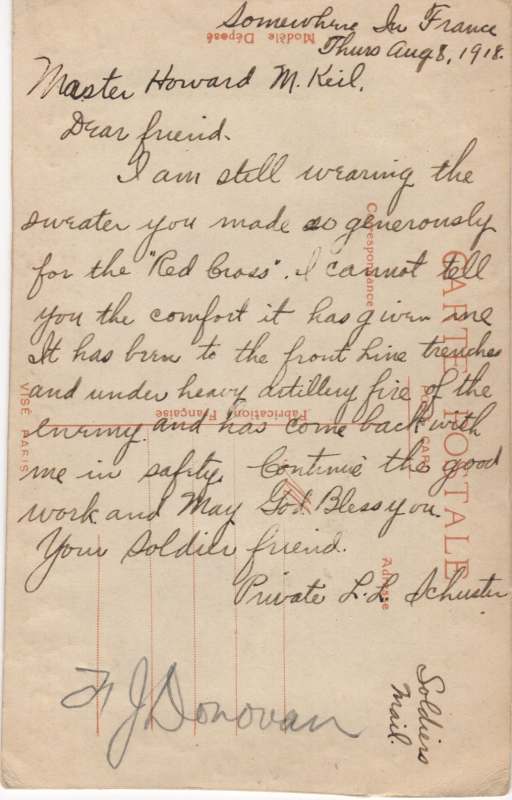 Somewhere In France
Modèle Déposé
Thurs Aug 8, 1918.
Master Howard M. Keil.
Dear friend.
I am still wearing the
sweater you made so generously
for the "Red Cross". I cannot tell
you the comfort it has given me
It has been to the front line trenches
and under heavy artillery fire of the
enemy. and has come back with
me in safety. Continue the good
work and May God Bless you.
Your soldier friend.
Private L. L. Schuster
Soldiers
Mail.
F J Donovan
CARTE POSTALE
POST CARD
Correspondance
Adresse
Fabrication Française
VISÉ PARIS